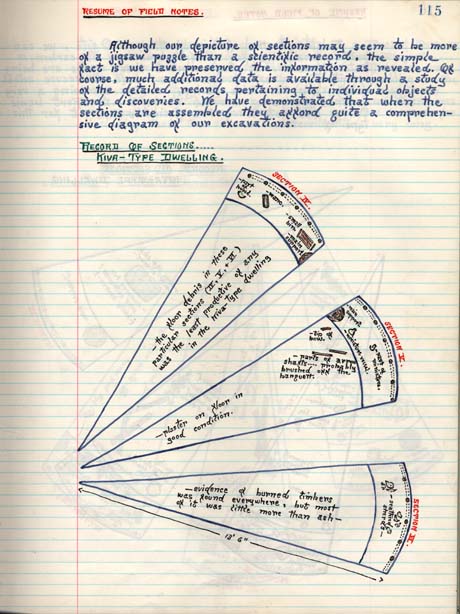 RESUME OF FIELD NOTES.
115
Although our depicture of sections may seem to be more
of a jigsaw puzzle than a scientific record, the simple
fact is we have preserved the information as revealed. Of
course, much additional data is available through a study
of the detailed records pertaining to individual objects
and discoveries. We have demonstrated that when the
sections are assembled they afford quite a comprehen-
sive diagram of our excavations.
RECORD OF SECTIONS.....
KIVA-TYPE DWELLING.
SECTION IV.
-the floor debris in these
particular sections (IV, V, + VI)
was the least productive of any
in the Kiva-type dwelling
SECTION V.
-parts of arrow
shafts - probably
brushed off the
banquett.
-plaster on floor in
good condition.
SECTION VI.
-evidence of burned timbers
was found everywhere, but most
of it was little more than ash-
13' 6"